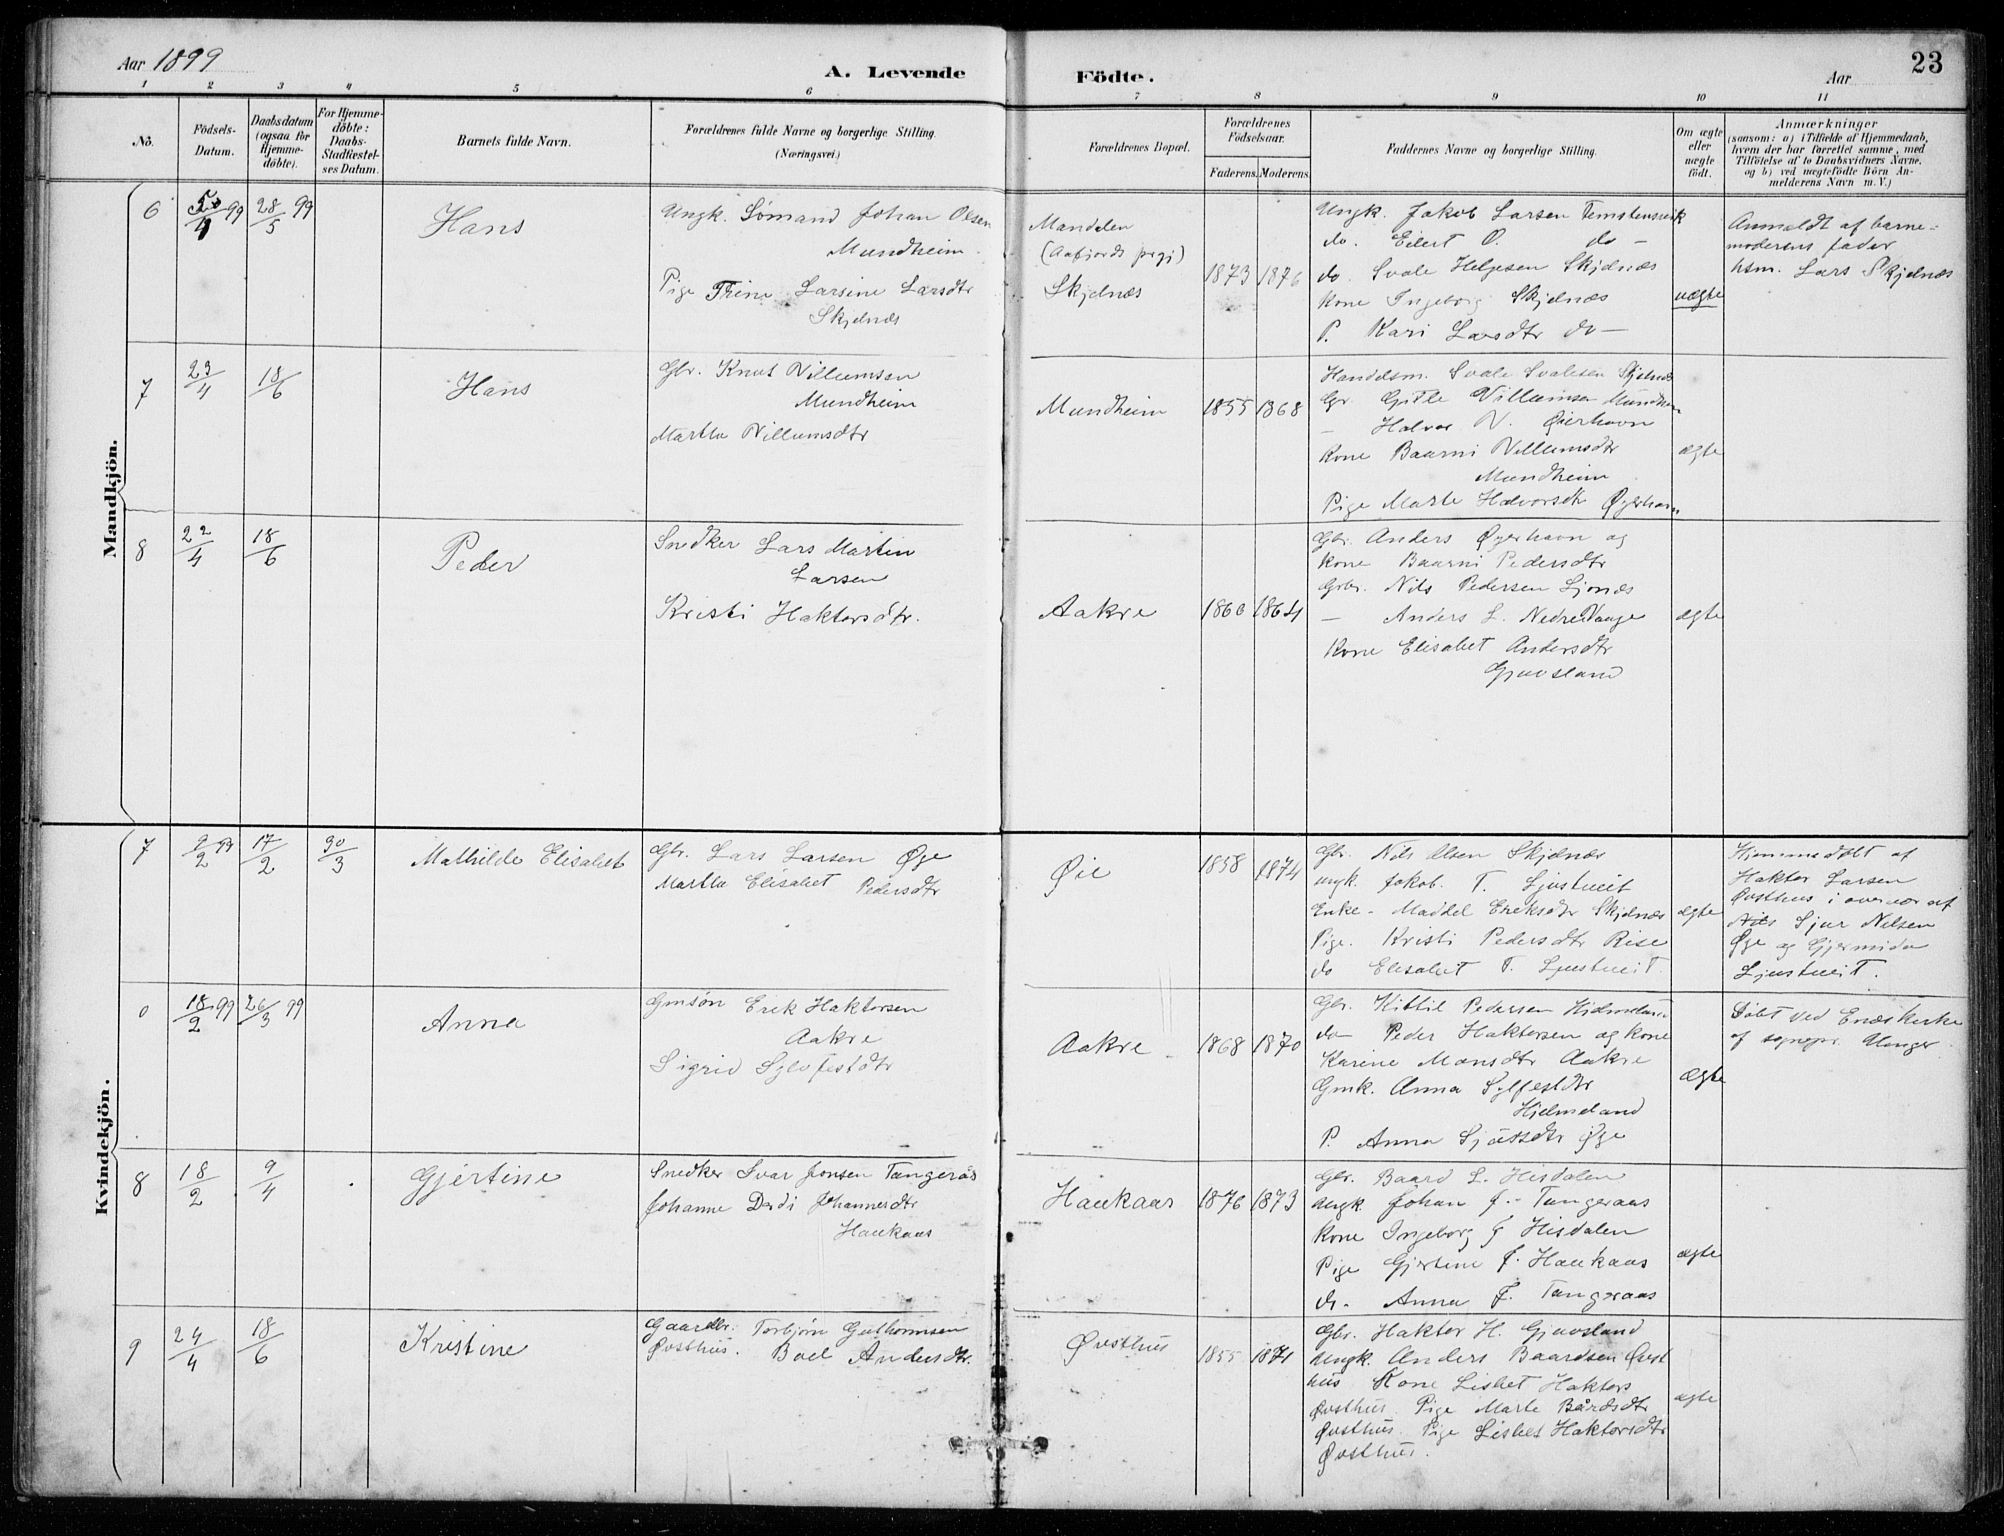 Aar 1899
A. Levende
Födte.
Aar
23
1 2 3 4 5 6 7 8 9 10 11
No.
Födsels-
Datum.
Daabsdatum
(ogsaa for
Hjemme-
döbte).
For Hjemme-
döbte:
Daabs-
Stadfæstel-
ses Datum.
Barnets fulde Navn.
Forældrenes fulde Navne og borgerlige Stilling.
(Næringsvei.)
Forældrenes Bopæl.
Forældrenes
Födselsaar.
Faderens. Moderens.
Faddernes Navne og borgerlige Stilling.
Om ægte
eller
uægte
födt.
Anmærkninger
(saasom: a) i Tilfælde af Hjemmedaab,
hvem der har forrettet samme, med
Tilföielse af to Daabsvidners Navne.
og b) ved uægtefödte Börn An-
melderens Navn m. V.)
Mandkjön.
6
99
28/5 99
Hans
Ungk. Sømand Johan Olsen
Mundheim.
Pige Trine Larsine Larsdtr
Skjelnæs
Mandalen
Skjelnæs
1873 1876
Ungk. Jakob Larsen
do. Eilert O. do -
do. Svale Helgesen Skjelnæs
Kone Ingeborg Skjelnæs
P. Kari Larsdtr do -
uægte
Anmeldt af barne-
moderens fader
hsm. Lars Skjelnæs
7
23/4
18/6
Hans
Gbr. Knut Villumsen
Mundheim
Martha Villumsdtr
Mundheim
1855 1868
Handelsm. Svale Svalesen Skjelnæs
Gbr. Gitle Villumsen Mundheim
- Halvor V. Øierhavn
Kone Baarni Villumsdtr
Mundheim
Pige Marte Halvorsdtr Øyerhavn
ægte
8
22/4
18/6
Peder
Snedker Lars Martin
Larsen
Kristi Haktorsdtr.
Aakre
1866 1864
Gbr. Anders Øyerhavn og
kone Baarni Pedersdtr
Gbr. Nils Pedersen Ljonæs
- Anders L. Nedre Vaage
Kone Elisabet Andersdtr
Gjuvsland
ægte
Kvindekjön.
7
9/2 99
17/2
30/3
Mathilde Elisabet
Gbr. Lars Larsen Øye
Martha Elisabet Pedersdtr
Øie
1858 1874
Gbr. Nils Olsen Skjelnæs
ungk. Jakob. T. Ljustveit
Enke - Maddel Eriksdtr Skjelnæs
Pige. Kristi Pedersdtr Rise
do Elisabet T. Ljustveit.
ægte
Hjemmedøbt af
Haktor Larsen
Øvsthus i overvær af
Nils Sjur Nilsen
Øye og
Ljustveit.
0
18/2 99
26/3 99
Anna
Gmsøn Erik Haktorsen
Aakre
Sigrid Sylfestdtr
Aakre
1868 1870
Gbr. Kittil Pedersen Hjelmeland
do - Peder Haktorsen og kone
Karine Monsdtr Aakre
Gmk. Anna Sylfestdtr
Hjelmeland
P. Anna Sjursdtr Øye
ægte
Døbt ved Enæs kirke
af sognepr. Unger
8
18/2
9/4
Gjertine
Snedker Ivar Jonsen Tangerås
Johanne Dordi Johannesdtr
Haukaas
Haukaas
1876 1873
Gbr. Baard L. Hisdalen
Ungk. Johan J. - Tangeraas
Kone Ingeborg J Hisdalen
Pige Gjertine J. Haukaas
do. Anna J. Tangeraas
ægte
9
24/4
18/6
Kristine
Gaardbr. Torbjørn Guthormsen
Øvsthus. Boel Andersdtr.
Øvsthus
1855 1871
Gbr. Haktor H. Gjuvsland
Ungk. Anders Baardsen Øvst
hus Kone Lisbet Haktors
Øvsthus. Pige Marte Bårdsdtr
Øvsthus. Pige Lisbet Haktorsdtr
Øvsthus.
ægte